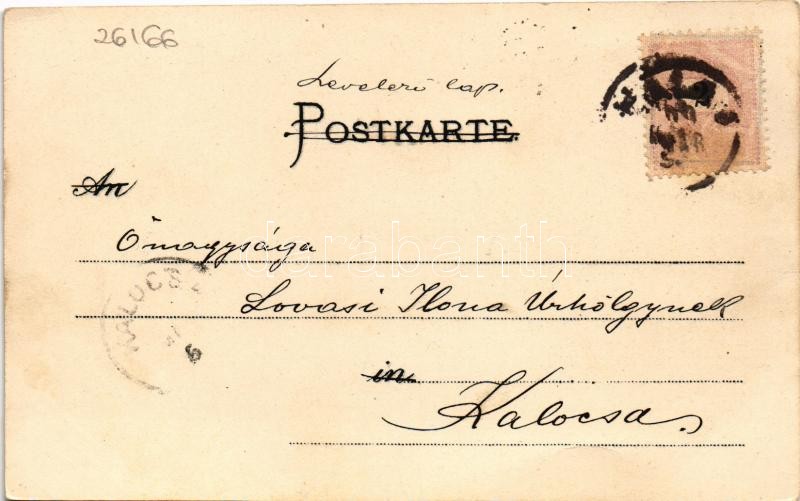 26166
Levelezi lap.
POSTKARTE.
An
Őnagysága
Lovasi Ilona Úrhölgynek
in
Kalocsa.
KALOCSA
darabanth